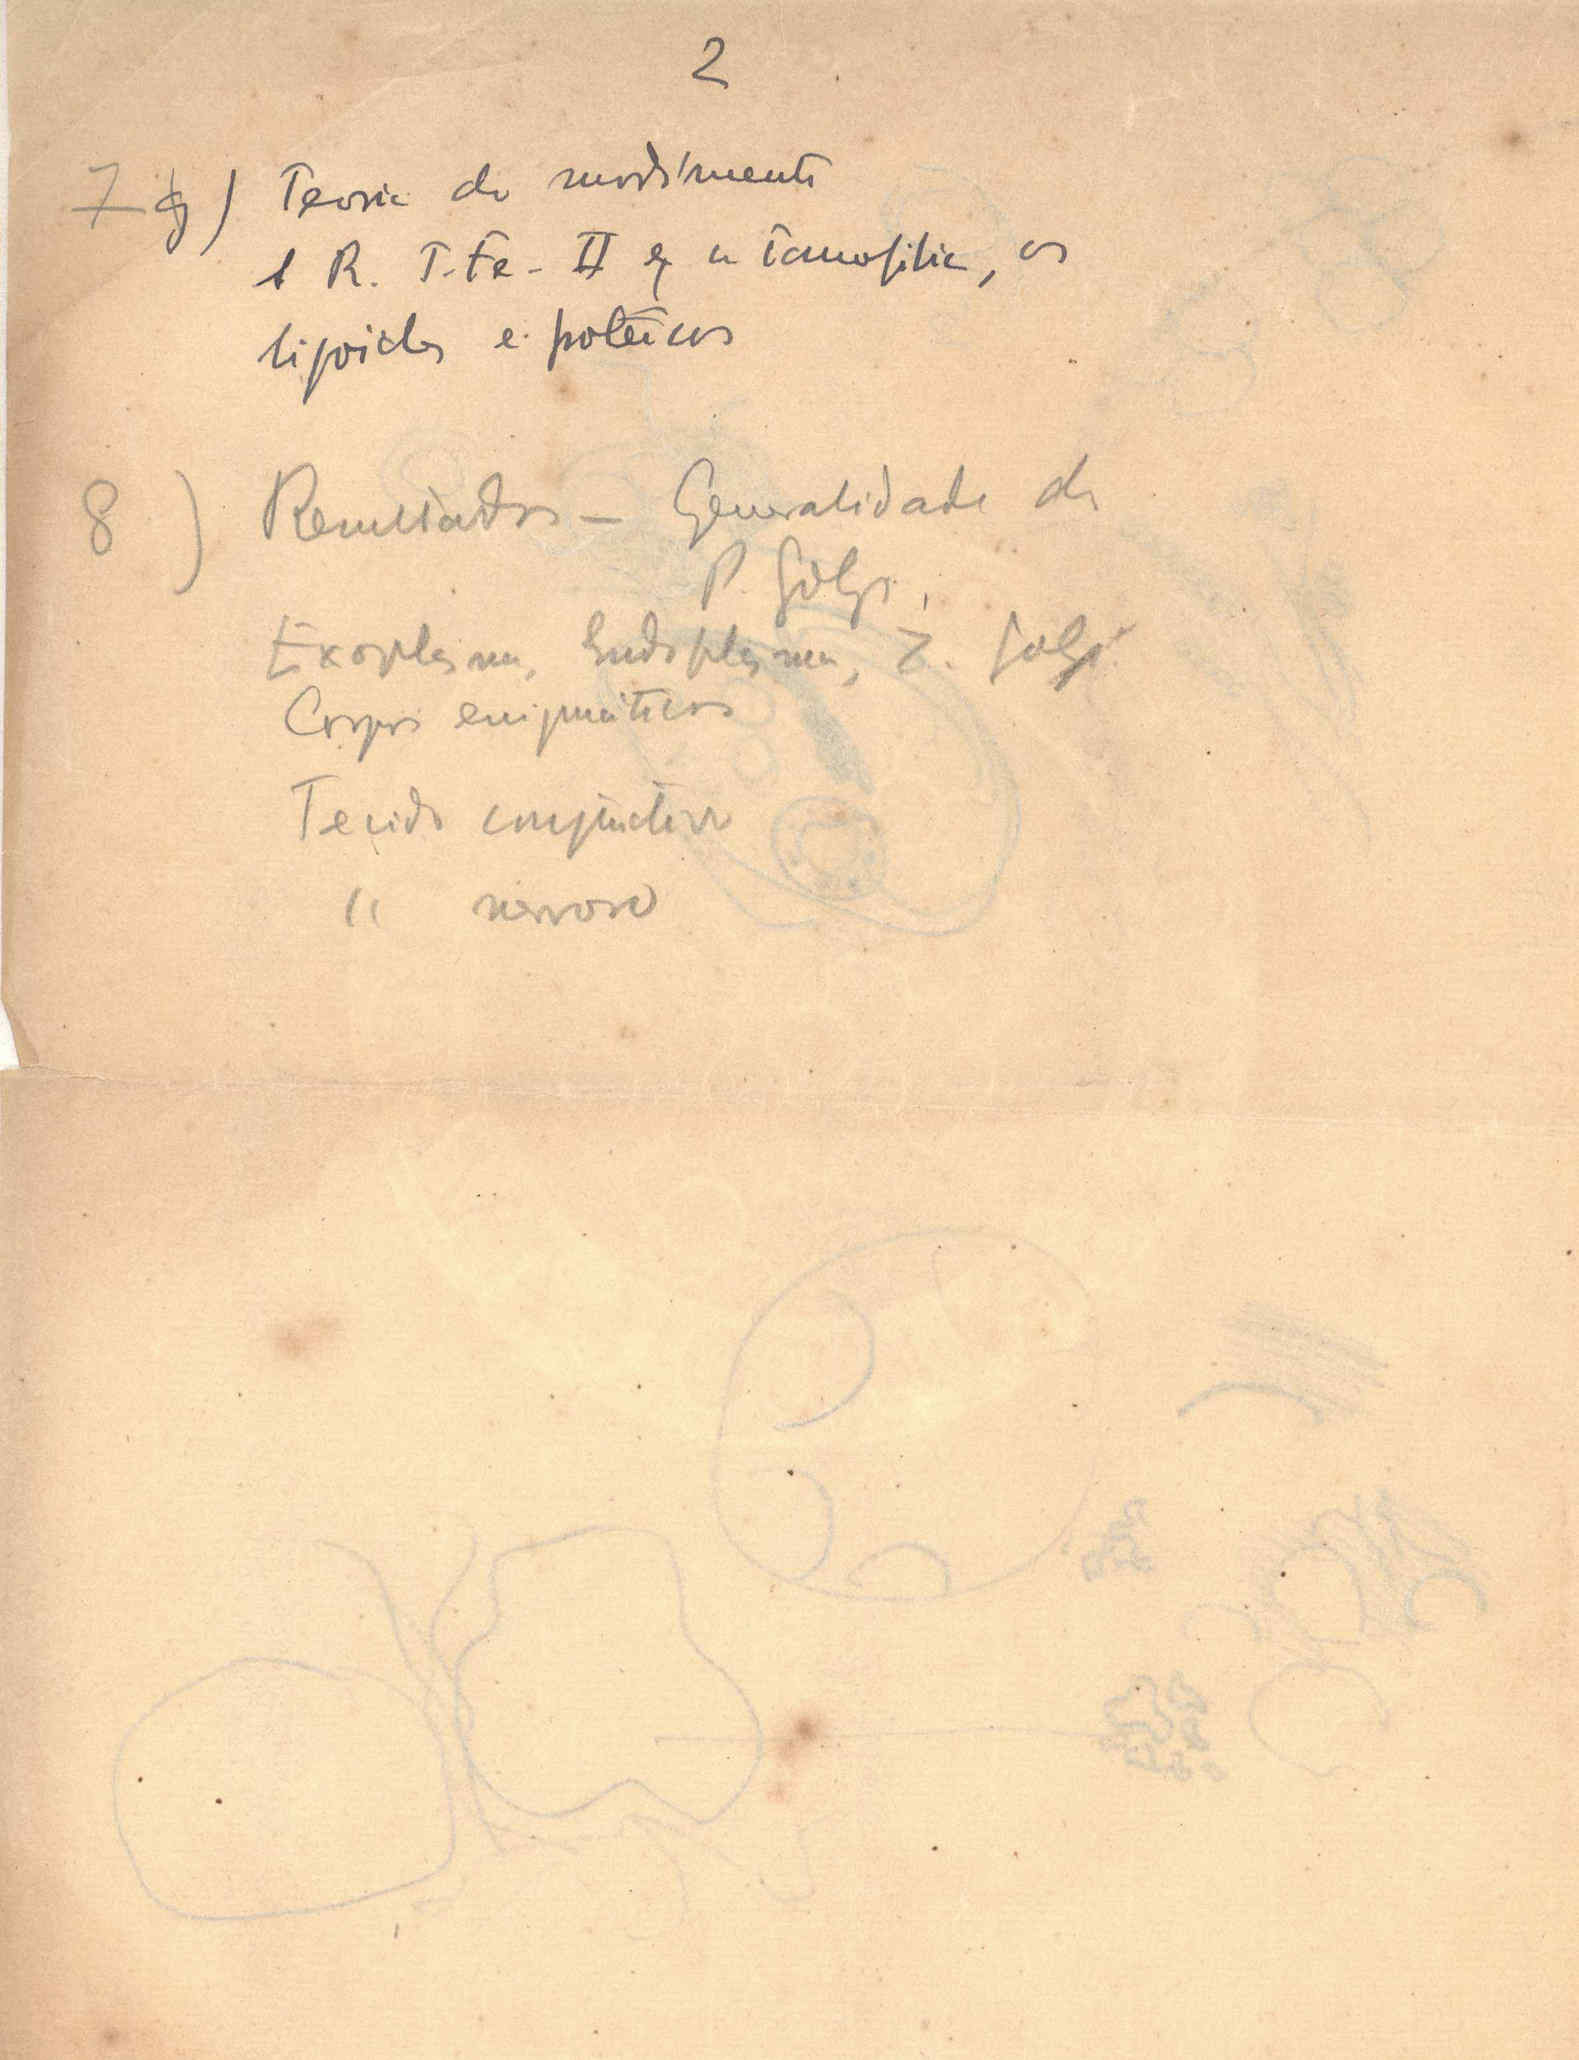 2
7 g) Teoria do mordimento
R. T-Fe-II a tanofilia, os
lipoides e proteicos
8) Resultados - Generalidade da
P. Golgi.
Exoplasma, Endoplasma, Z. Golgi
Corpos enigmáticos
Tecido conjuntivo
" nervoso